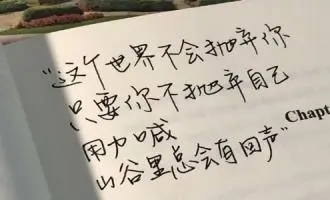 “这个世界不会抛弃你
只要你不抛弃自己
用力喊
山谷里总会有回声”
Chapt